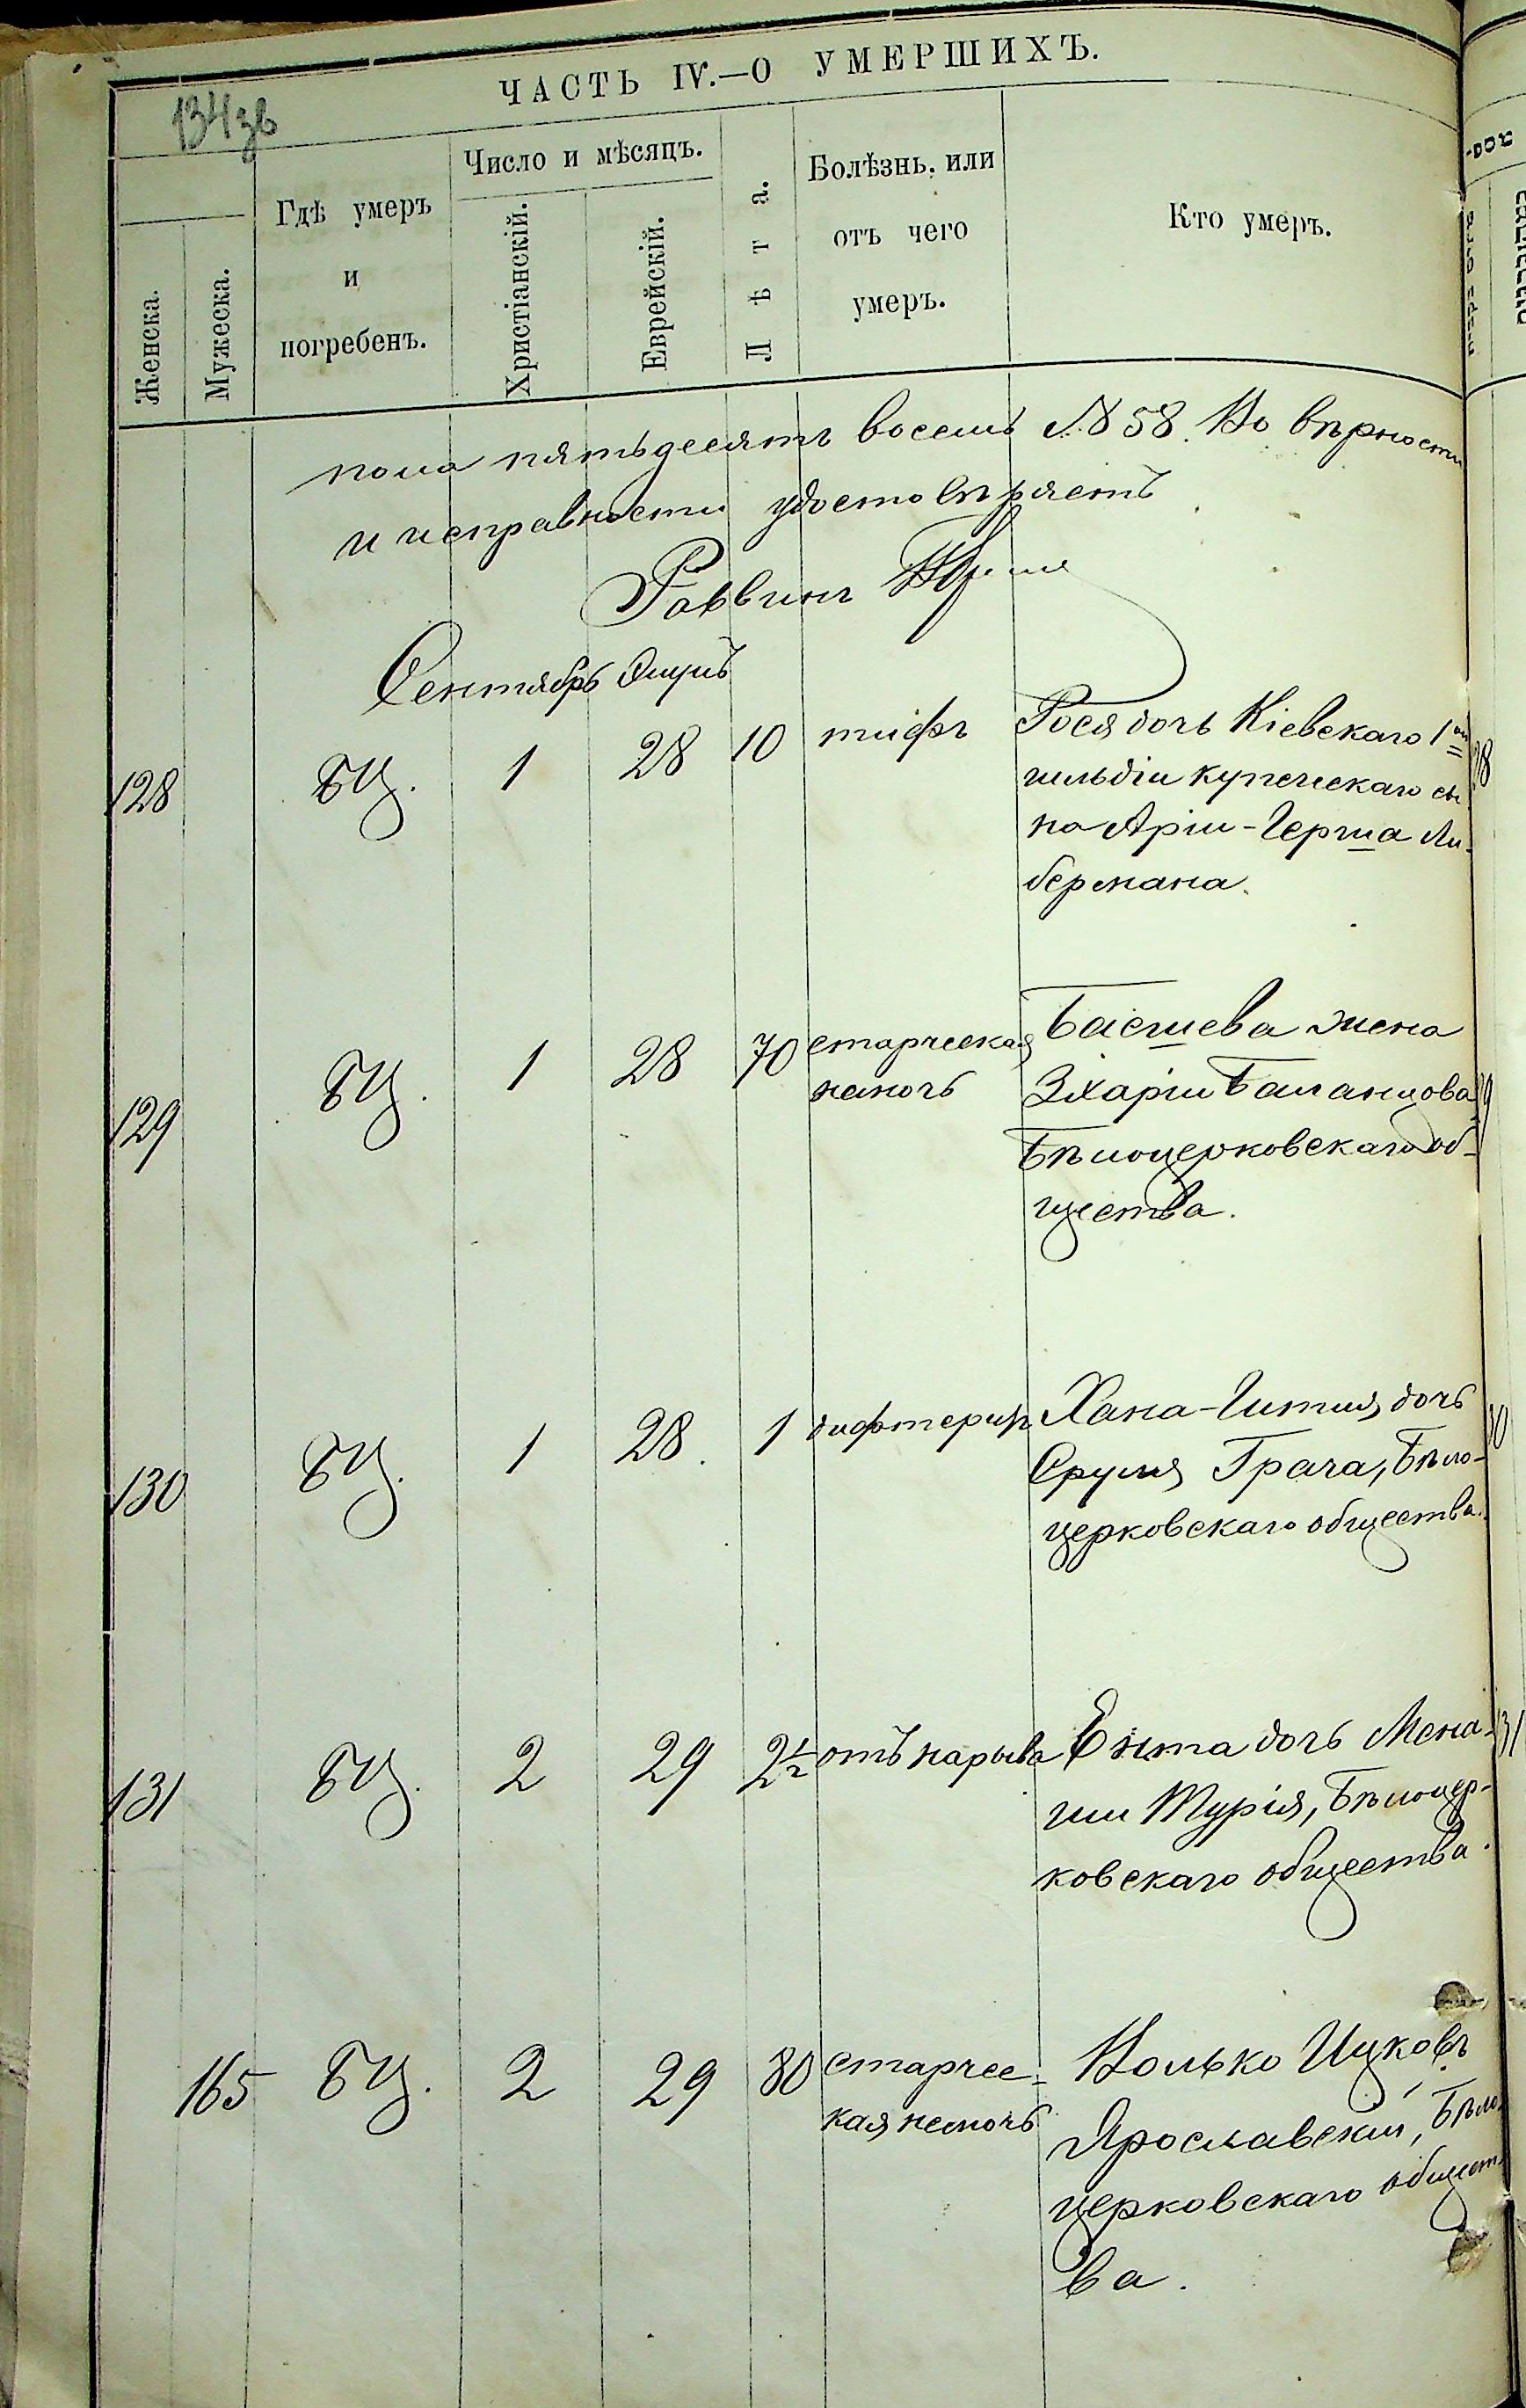 ЧАСТЬ IV.—О УМЕРШИХЪ.
134зв
Женска.
Мужеска.
Гдѣ умеръ
и
погребенъ.
Число и мѣсяцъ.
Христіанскій.
Еврейскій.
Лѣта.
Болѣзнь, или
отъ чего
умеръ.
Кто умеръ.
пола пятьдесятъ восемь №58. Во вѣрности
и исправности удостовѣряетъ
Раввинъ
Сентябрь Элулъ
128 БЦ. 1 28 10 тифъ Рося дочь Кіевскаго 1ой
гильдіи купеческаго сы
на Аріи-Герша Ли-
бермана.
129 БЦ. 1 28 70 старческая Басшева жена
немочь Зхаріи
Бѣлоцерковскаго об-
щества.
130 БЦ. 1 28 1 дифтеритъ Хана-Гитля, дочь
Сруля Грача, Бѣло-
церковскаго общества.
131 БЦ. 2 29 2½ отъ нарыва Ента дочь Мена-
ши Турія, Бѣлоцер-
ковскаго общества.
165 БЦ. 2 29 80 старчес- Волько Ицковъ
кая немочь Ярославскій, Бѣло
церковскаго общест
ва.